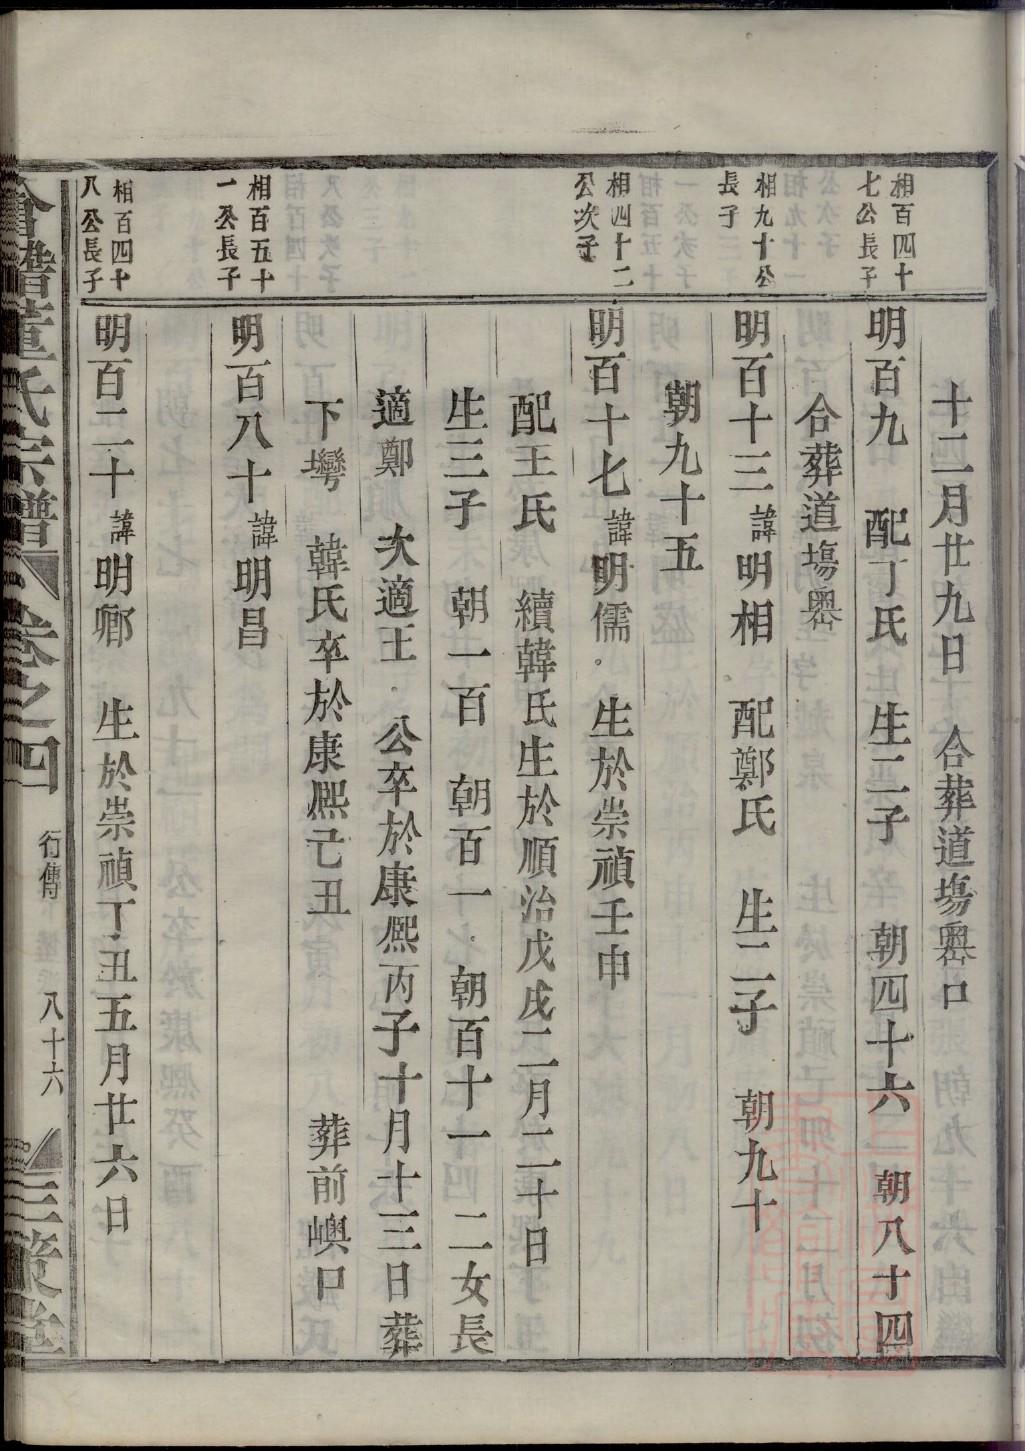 十二月廿九日　合葬道塲嶴口
相百四十七公長子
明百九　配丁氏　生二子　朝四十六　朝八十四
合葬道塲嶴
相九十公長子
明百十三諱明相　配鄭氏　生二子　朝九十
朝九十五
相四十二公次子
明百十七諱明儒　生於崇禎壬申
配王氏　續韓氏生於順治戊戌二月二十日
生三子　朝一百　朝百一　朝百十一　二女長
適鄭　次適王　公卒於康熈丙子十月十三日葬
下灣　韓氏卒於康熈己丑　葬前嶼口
相百五十一公長子
明百八十諱明昌
相百四十八公長子
明百二十諱明卿　生於崇禎丁丑五月廿六日
合譜董氏宗譜　卷之四　行傳　八十六　三策堂